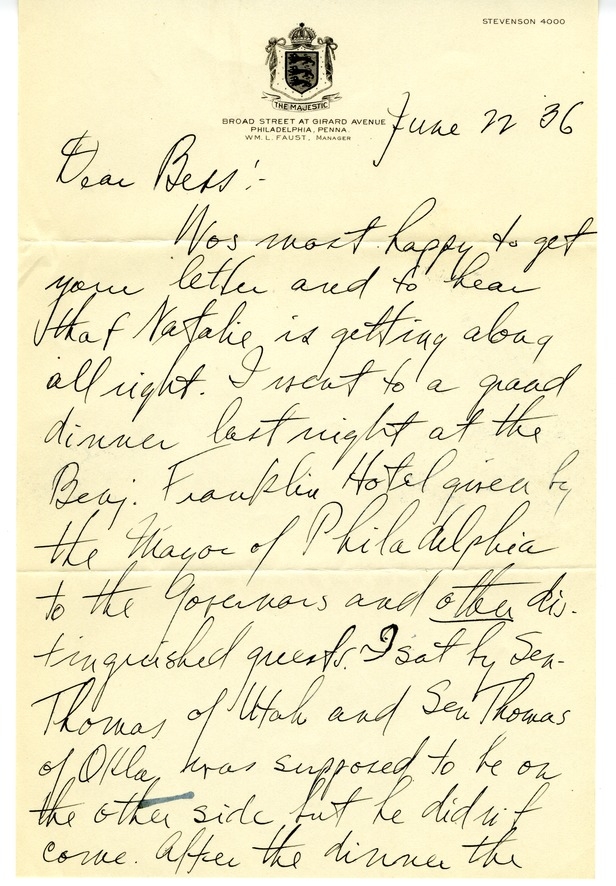 STEVENSON 4000
THE MAJESTIC
BROAD STREET AT GIRARD AVENUE
PHILADELPHIA, PENNA.
WM. L. FAUST, MANAGER
June 22 '36
Dear Bess:-
Was most happy to get
your letter and to hear
that Natalie is getting along
all right. I went to a grand
dinner last night at the
Benj. Franklin Hotel given by
the Mayor of Philadelphia
to the Governors and other dis-
tinguished guests. I sat by Sen.
Thomas of Utah and Sen Thomas
of Okla, was supposed to be on
the other side but he didn't
come. After the dinner the